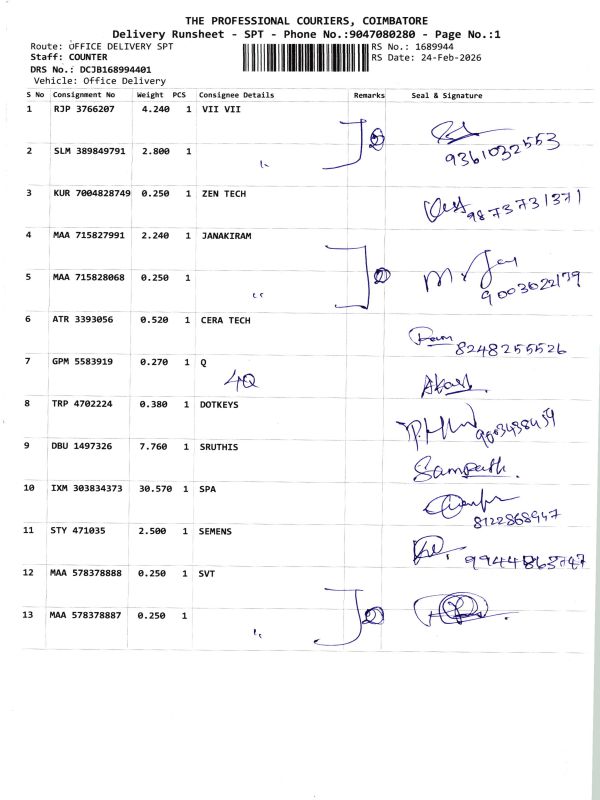 THE PROFESSIONAL COURIERS, COIMBATORE
Delivery Runsheet - SPT - Phone No.:9047080280 - Page No.:1
Route: OFFICE DELIVERY SPT RS No.: 1689944
Staff: COUNTER RS Date: 24-Feb-2026
DRS No.: DCJB168994401
Vehicle: Office Delivery
S No Consignment No Weight PCS Consignee Details Remarks Seal & Signature
1 RJP 3766207 4.240 1 VII VII
9361032553
2 SLM 389849791 2.800 1 "
3 KUR 7004828749 0.250 1 ZEN TECH
9873731371
4 MAA 715827991 2.240 1 JANAKIRAM
5 MAA 715828068 0.250 1 "
9003022179
6 ATR 3393056 0.520 1 CERA TECH
Ram 8248255526
7 GPM 5583919 0.270 1 Q
4Q Akash
8 TRP 4702224 0.380 1 DOTKEYS
9003438459
9 DBU 1497326 7.760 1 SRUTHIS
Sampath.
10 IXM 303834373 30.570 1 SPA
8122868947
11 STY 471035 2.500 1 SEMENS
9944863747
12 MAA 578378888 0.250 1 SVT
13 MAA 578378887 0.250 1 "